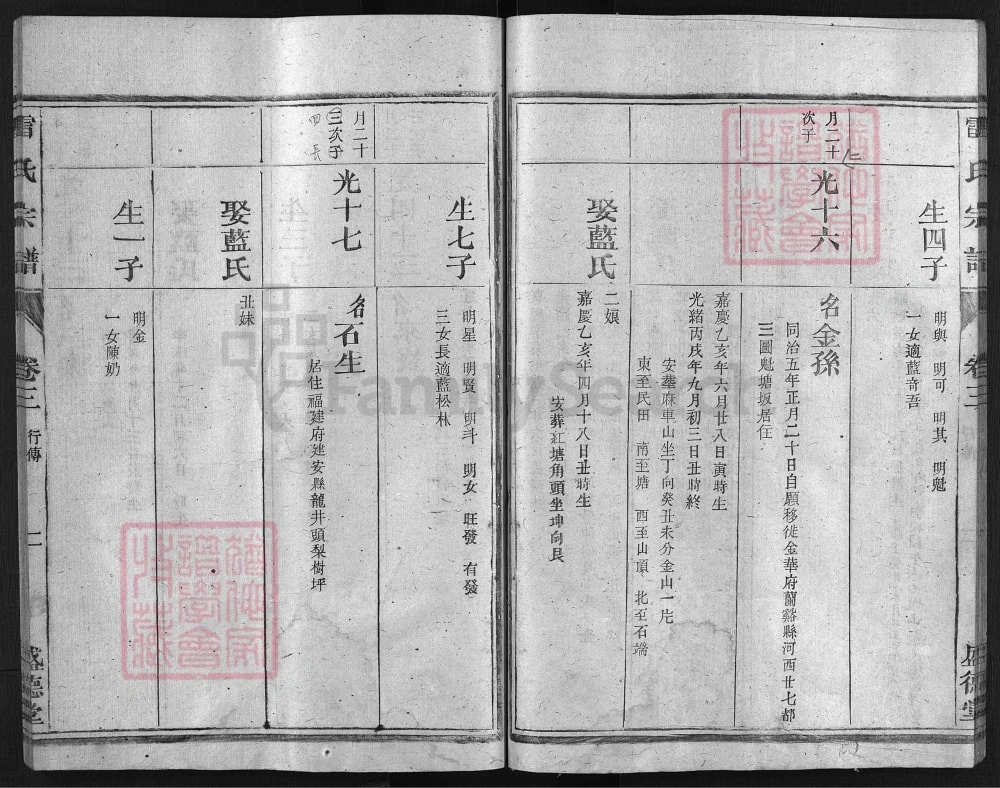 雷氏宗譜
卷三
盛德堂
生四子
明興 明可 明其 明魁
一女適藍奇吾
月二十
次子
光十六
名金孫
同治五年正月二十日自願移徙金華府蘭谿縣河西廿七都
三圖魁塘坂居住
嘉慶乙亥年六月廿八日寅時生
光緒丙戌年九月初三日丑時終
安塟麻車山坐丁向癸丑未分金山一片
東至民田 南至塘 西至山頂 北至石端
娶藍氏
二娘
嘉慶乙亥年四月十八日丑時生
安葬紅塘角頭坐坤向艮
生七子
明星 明賢 明斗 明女 旺發 有發
三女長適藍松林
月二十
三次子
四 長
光十七
名石生
居住福建府建安縣龍井頭梨樹坪
娶藍氏
丑妹
生一子
明金
一女陳奶
雷氏宗譜
卷三 行傳 二
盛德堂
FamilySearch